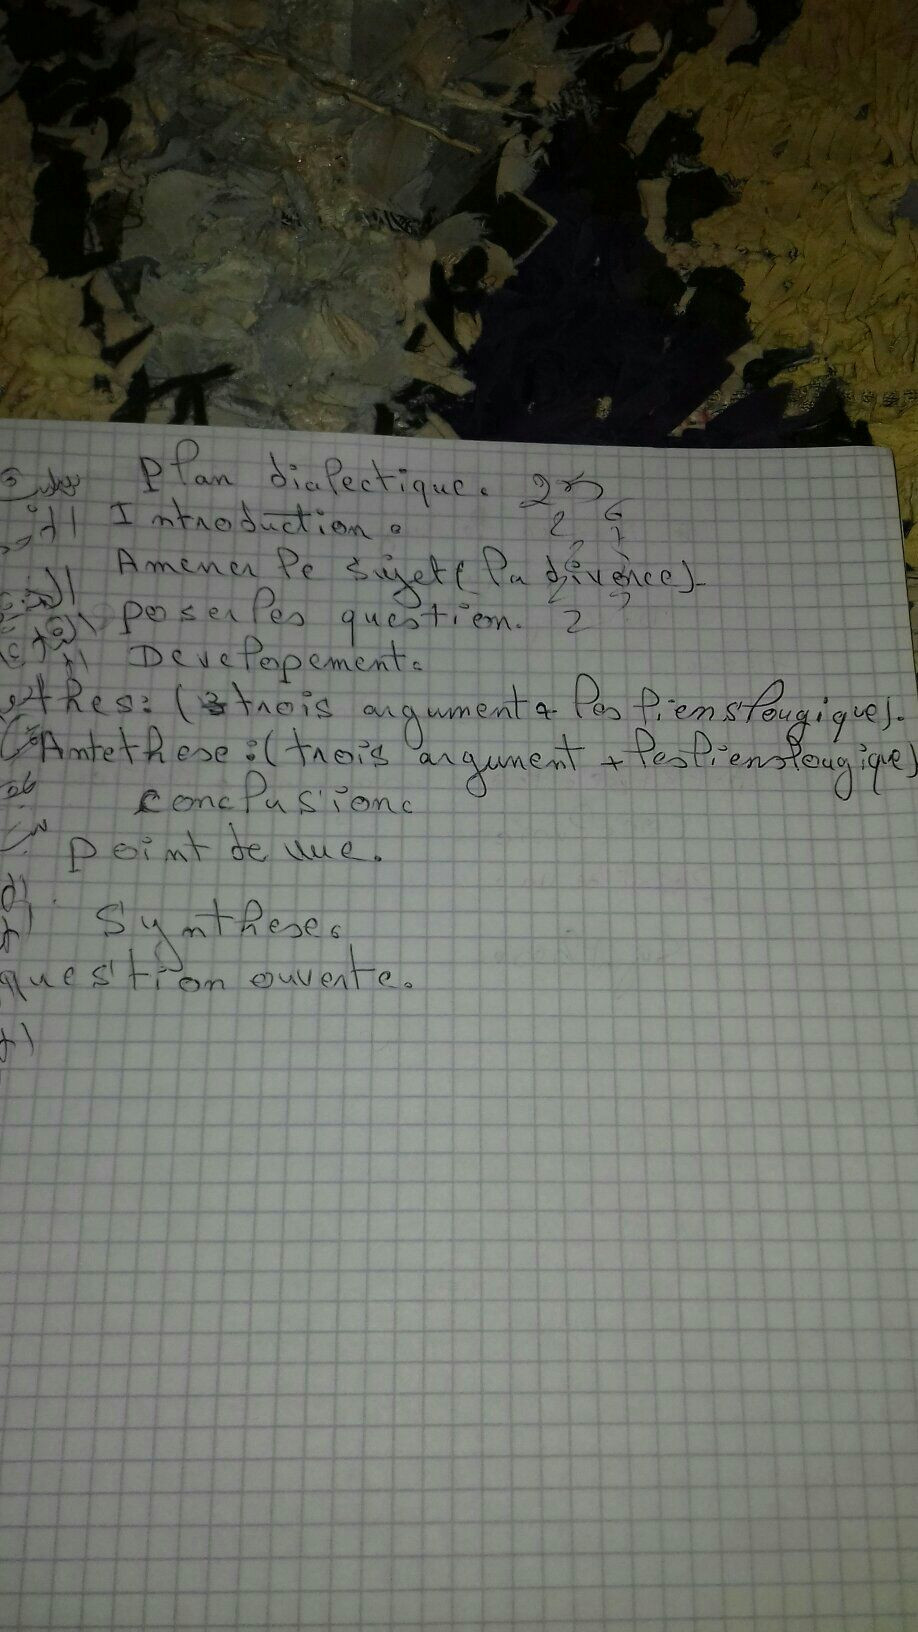 Plan dialectique.
Introduction.
Amener le sujet (la divence).
poser les question.
Developement.
thes: (trois argument + les liens lougique).
Antethese: (trois argument + les liens lougique)
conclusion
point de vue.
Synthese.
question ouverte.